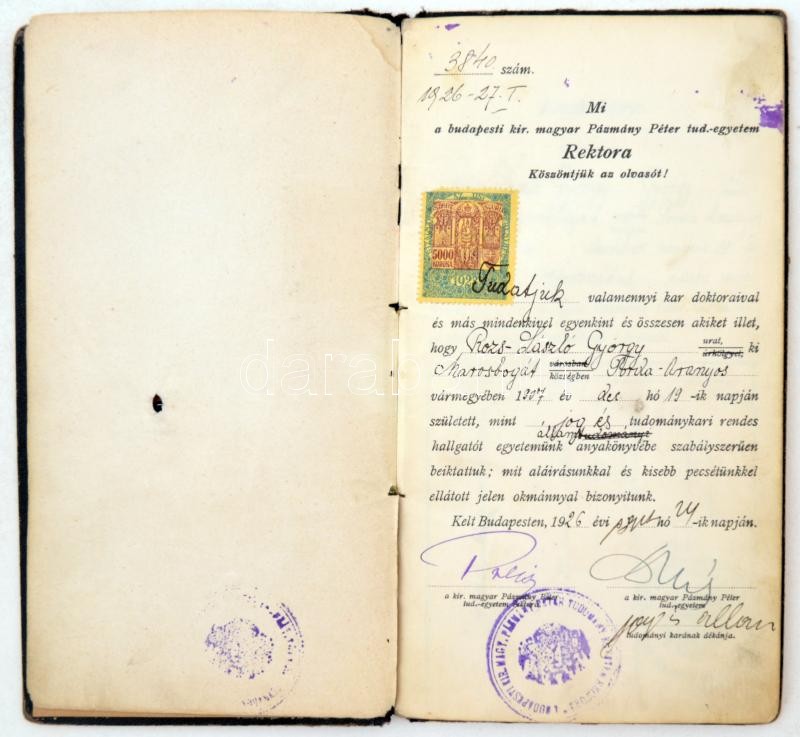 3840. szám.
1926-27. I.
Mi
a budapesti kir. magyar Pázmány Péter tud.-egyetem
Rektora
Köszöntjük az olvasót!
5000
KORONA
Tudatjuk valamennyi kar doktoraival
és más mindenkivel egyenkint és összesen akiket illet,
hogy Rozs-László György urat, úrhölgyet, ki
Marosbogát városban községben Torda-Aranyos
vármegyében 1907 év dec hó 19-ik napján
született, mint jog és tudománykari rendes
állam tudományi
hallgatót egyetemünk anyakönyvébe szabályszerűen
beiktattuk; mit aláírásunkkal és kisebb pecsétünkkel
ellátott jelen okmánnyal bizonyitunk.
Kelt Budapesten, 1926 évi szept hó 24-ik napján.
a kir. magyar Pázmány Péter
tud.-egyetem
a kir. magyar Pázmány Péter
tud.-egyetem
jog és állam
tudományi karának dékánja.